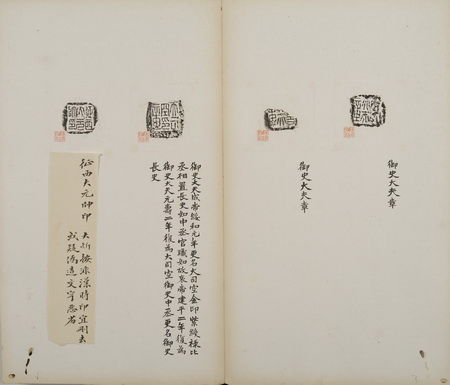 御史大夫章
御史大夫章
御史大夫成帝綏和元年更名大司空金印紫綬祿比
丞相置長史如中丞官職如故哀帝建平二年復為
御史大夫元壽二年復為大司空御史中丞更名御史
長史
征西大元帥印
大昕按非漢時印宜刪去
或疑偽造文字惡劣